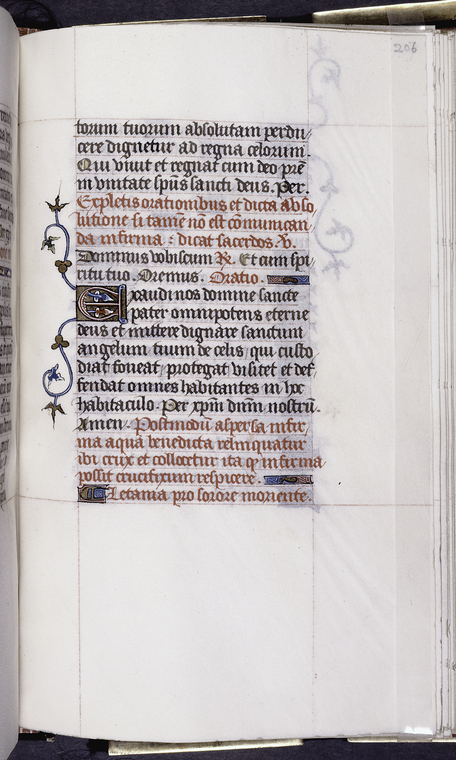 206
torum tuorum absolutam perdu
cere dignetur ad regna celorum.
Qui viuit et regnat cum deo pr̄e
in vnitate sp̄us sancti deus. Per.
Expletis orationibus et dicta abso
lutione si tamē nō est cōmunican
da infirma : dicat sacerdos. V̄.
Dominus vobiscum R̄. Et cum spi
ritu tuo. Oremus. Oratio.
Exaudi nos domine sancte
pater omnipotens eterne
deus et mittere dignare sanctum
angelum tuum de celis, qui custo
diat foueat, protegat visitet et def
fendat omnes habitantes in hoc
habitaculo. Per xp̄m dn̄m nostrū.
Amen. Postmodū aspersa infir
ma aqua benedicta relinquatur
ibi crux et collocetur ita qꝫ infirma
possit crucifixum respicere.
Letania pro sorore moriente.